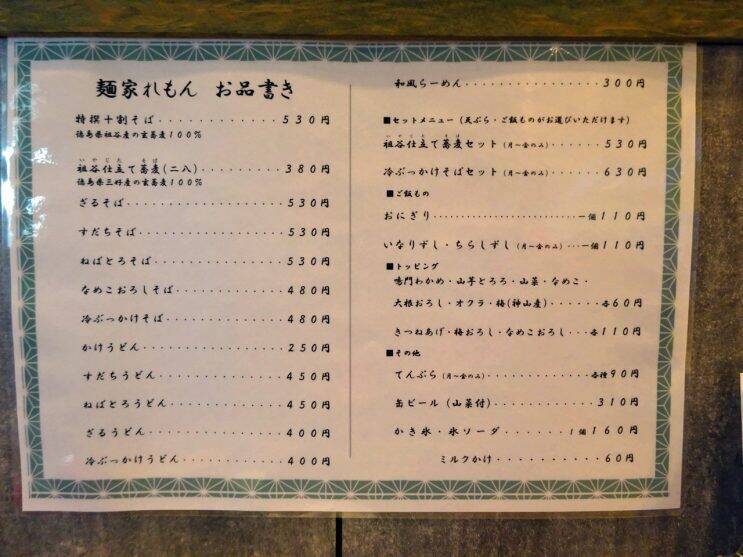 麺家れもん お品書き
特撰十割そば・・・・・・・・・・・・・530円
徳島県祖谷産の玄蕎麦100%
いやじたて そば
祖谷仕立て蕎麦(二八)・・・・・・・・・380円
徳島県三好産の玄蕎麦100%
ざるそば・・・・・・・・・・・・・・・530円
すだちそば・・・・・・・・・・・・・・530円
ねばとろそば・・・・・・・・・・・・・530円
なめこおろしそば・・・・・・・・・・・480円
冷ぶっかけそば・・・・・・・・・・・・480円
かけうどん・・・・・・・・・・・・・・250円
すだちうどん・・・・・・・・・・・・・450円
ねばとろうどん・・・・・・・・・・・・450円
ざるうどん・・・・・・・・・・・・・・400円
冷ぶっかけうどん・・・・・・・・・・・400円
和風らーめん・・・・・・・・・・・・・300円
■セットメニュー(天ぷら・ご飯ものがお選びいただけます)
いやじたて そば
祖谷仕立て蕎麦セット(月〜金のみ)・・・・・530円
冷ぶっかけそばセット(月〜金のみ)・・・・・630円
■ご飯もの
おにぎり・・・・・・・・・・・・・・・一個110円
いなりずし・ちらしずし(月〜金のみ)・・・一個110円
■トッピング
鳴門わかめ・山芋とろろ・山菜・なめこ・
大根おろし・オクラ・梅(神山産)・・・・・・各60円
きつねあげ・梅おろし・なめこおろし・・・各110円
■その他
てんぷら(月〜金のみ)・・・・・・・・・・各種90円
缶ビール(山菜付)・・・・・・・・・・・310円
かき氷・氷ソーダ・・・・・・・・・1個160円
ミルクかけ・・・・・・・・・・・60円